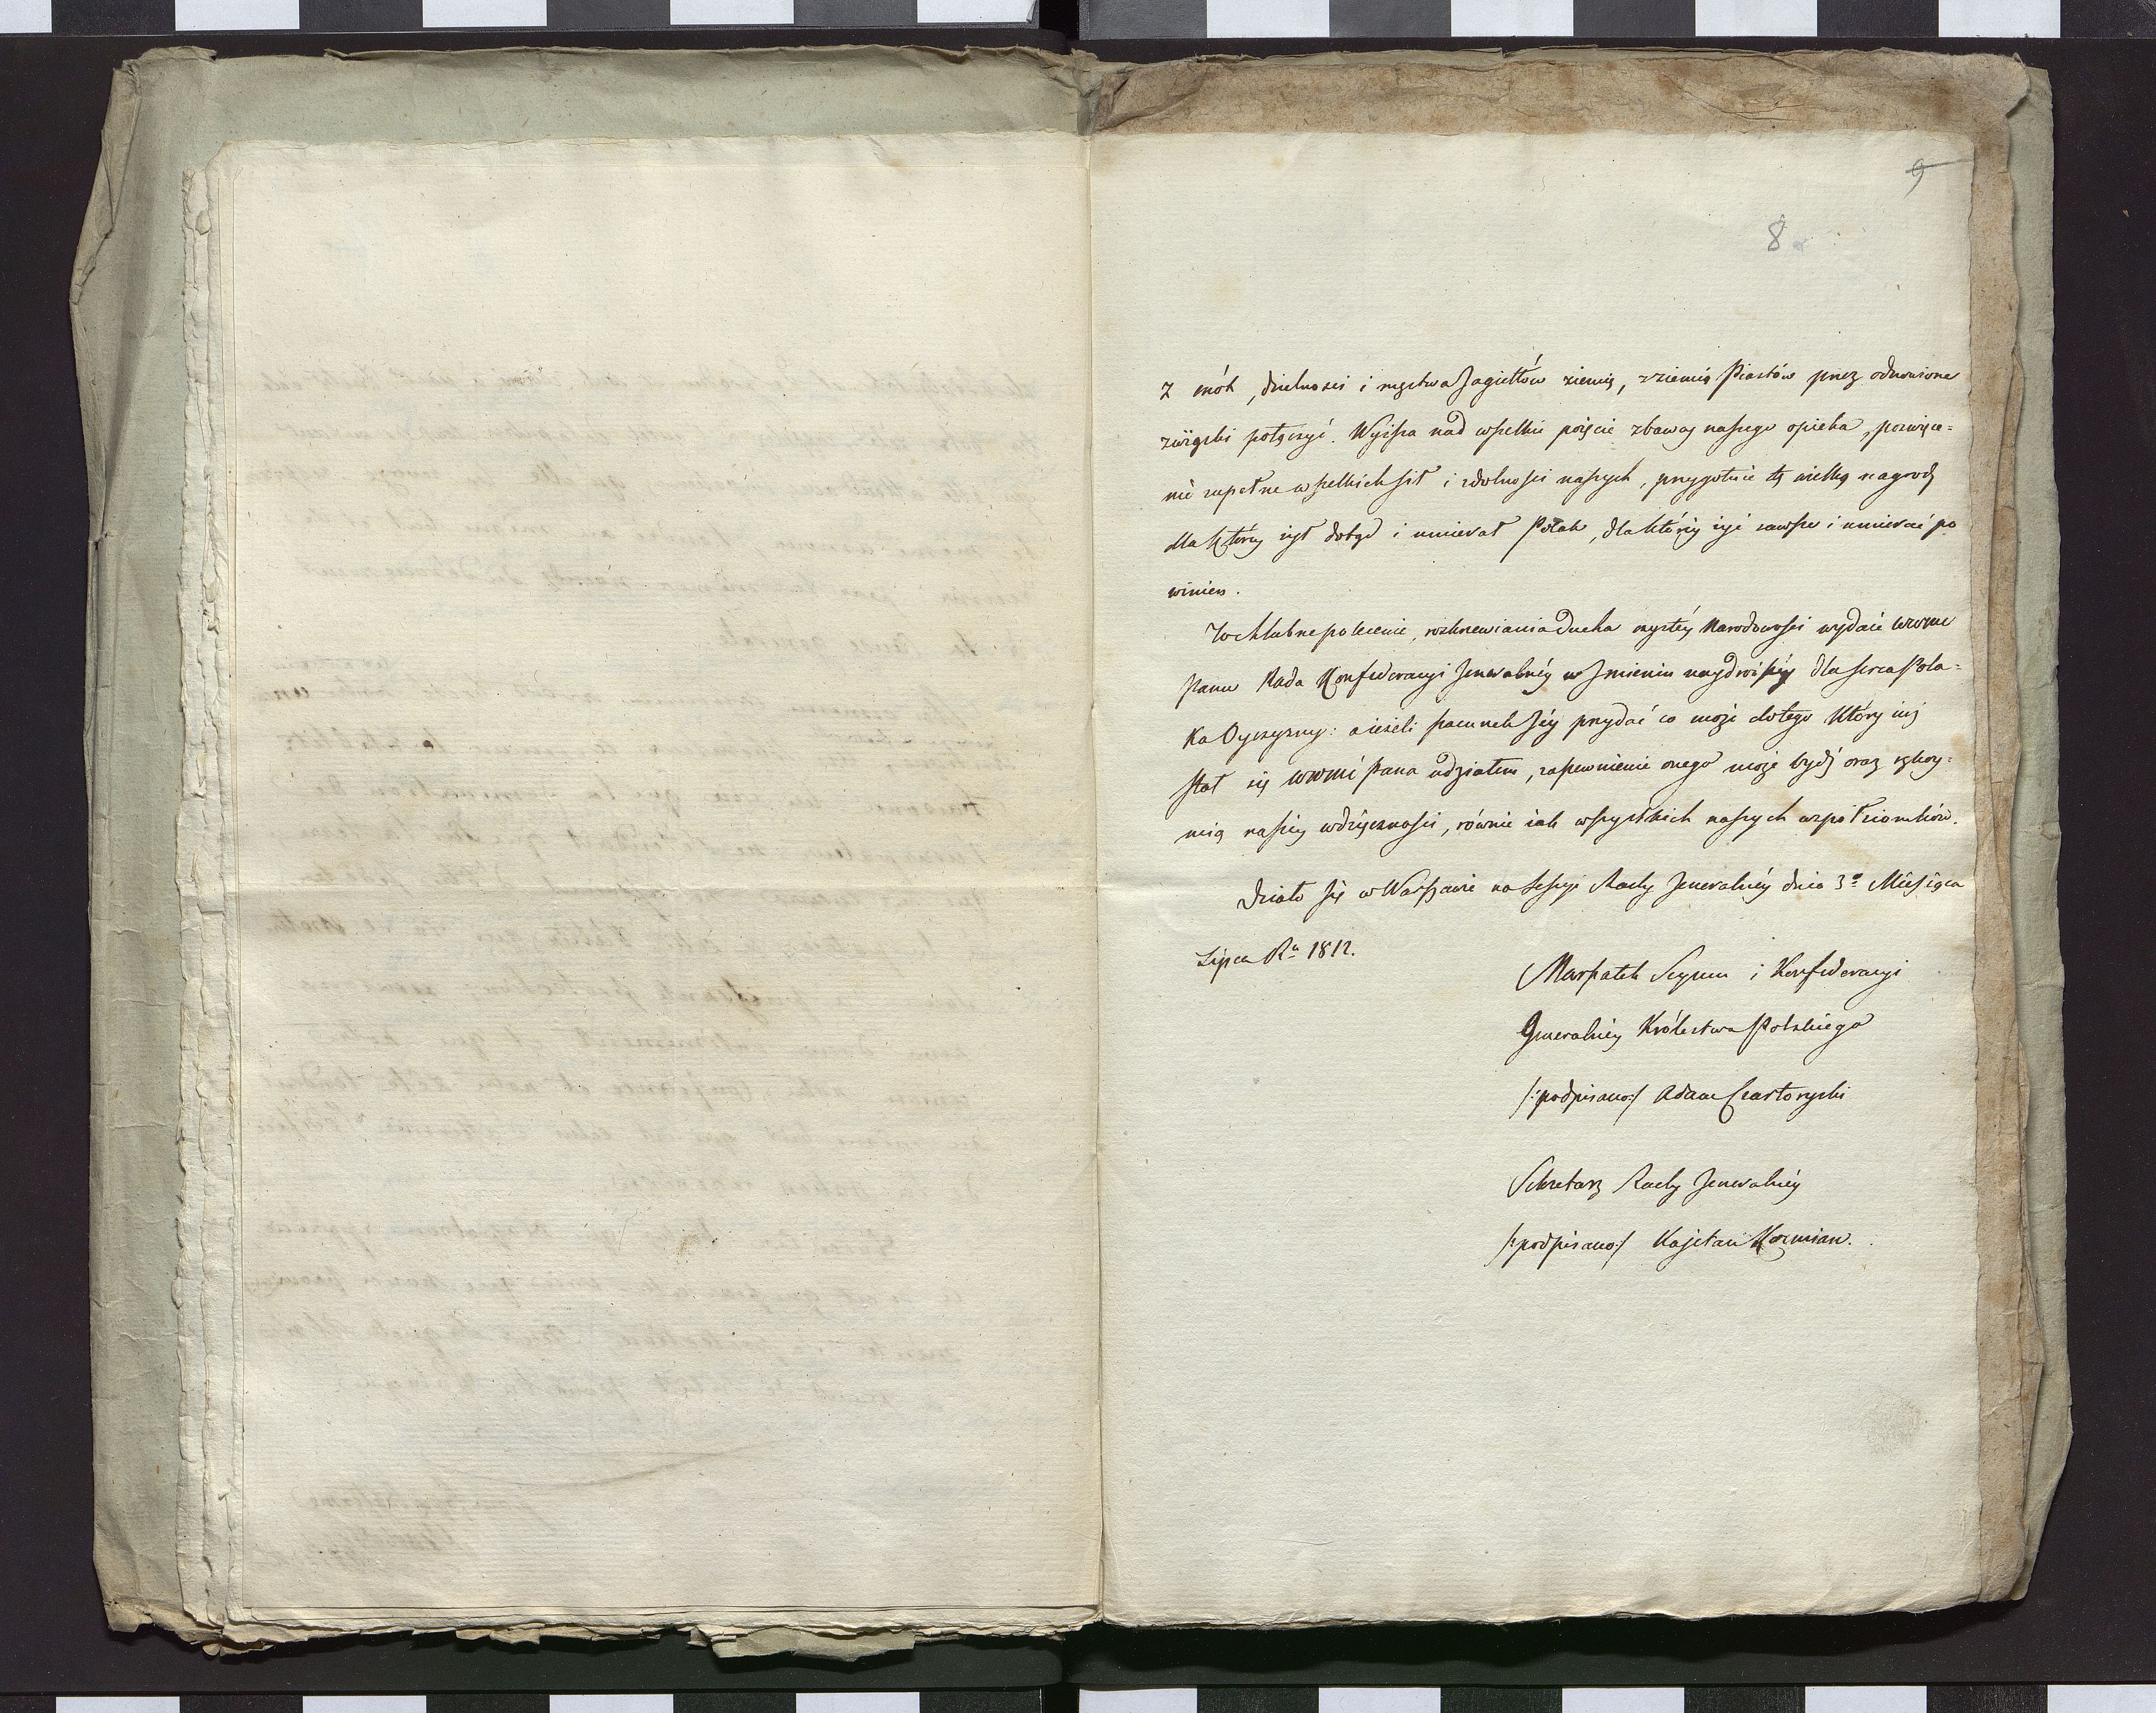 9
8
z cnót, dzielnosci i męztwa Jagiełłów ziemię, z ziemią Piastów przez odnowione
związki połączyć. Wyższa nad wszelkie poięcie zbawcy naszego opieka, poswięce=
nie zupełne wszelkich sił i zdolnosci naszych, przygotuie tę wielką nagrodę
dla którey żył dotąd i umierał Polak, dla którey żyć zawsze i umierać po
winien.
To chlubne polecenie, rozkrzewiania Ducha czystey Narodowosci wydaie WWMC
Panu Rada Konfederacyi Jeneralney w Jmieniu naydroższey dla serca Pola=
ka Oyczyzny: a ieżeli szacunek Jey przydać co może do tego który iuż
stał się WWMC Pana udziałem, zapewnienie onego może bydź oraz rękoy=
mią naszey wdzięcznosci, równie iak wszystkich naszych wspołziomków.
Działo się w Warszawie na Sessyi Rady Jeneralney dnia 3º Miesiąca
Lipca Rª 1812.
Marszałek Seymu i Konfederacyi
Generalney Królestwa Polskiego
/:podpisano:/ Adam Czartoryski
Sekretarz Rady Jeneralney
/:podpisano:/ Kajetan Kozmian.